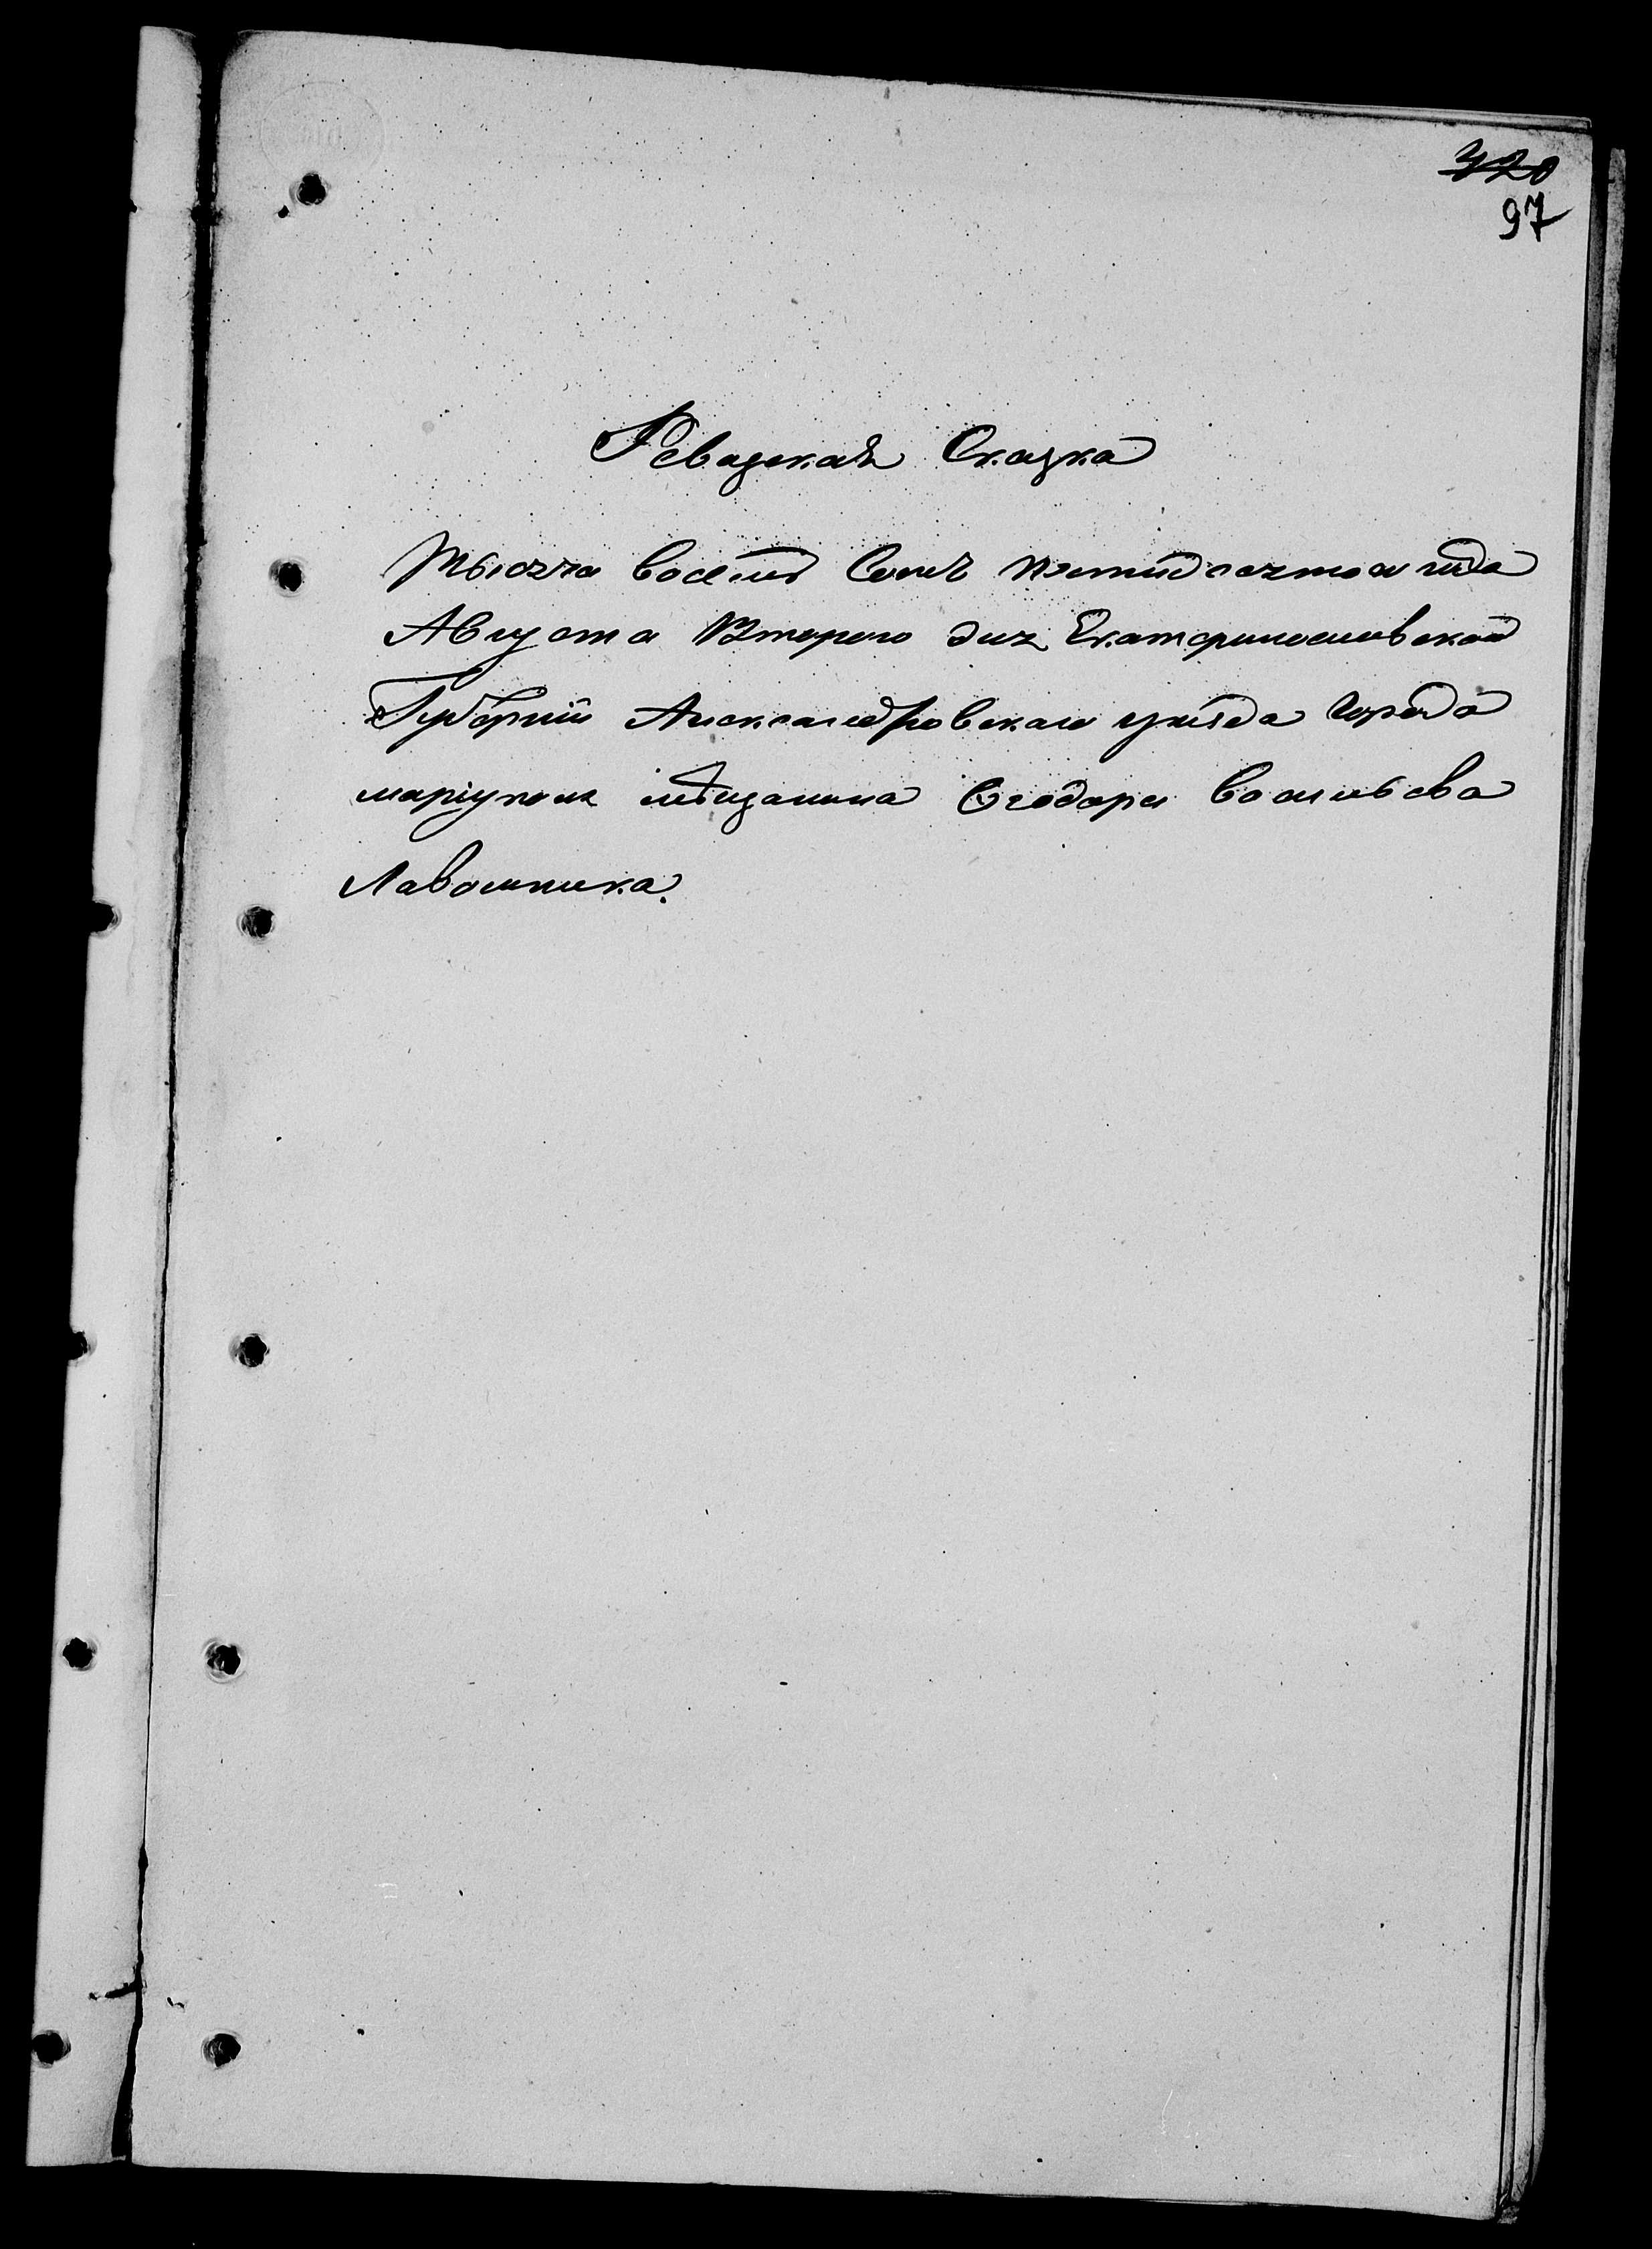 420
97
Ревизская Сказка
Тысяча восемь Сотъ пятидесятого года
Августа Второго дня Екатеринославской
Губерніи Александровскаго уѣзда города
маріуполя мѣщанина Ѳеодора Васильева
Лавошника.